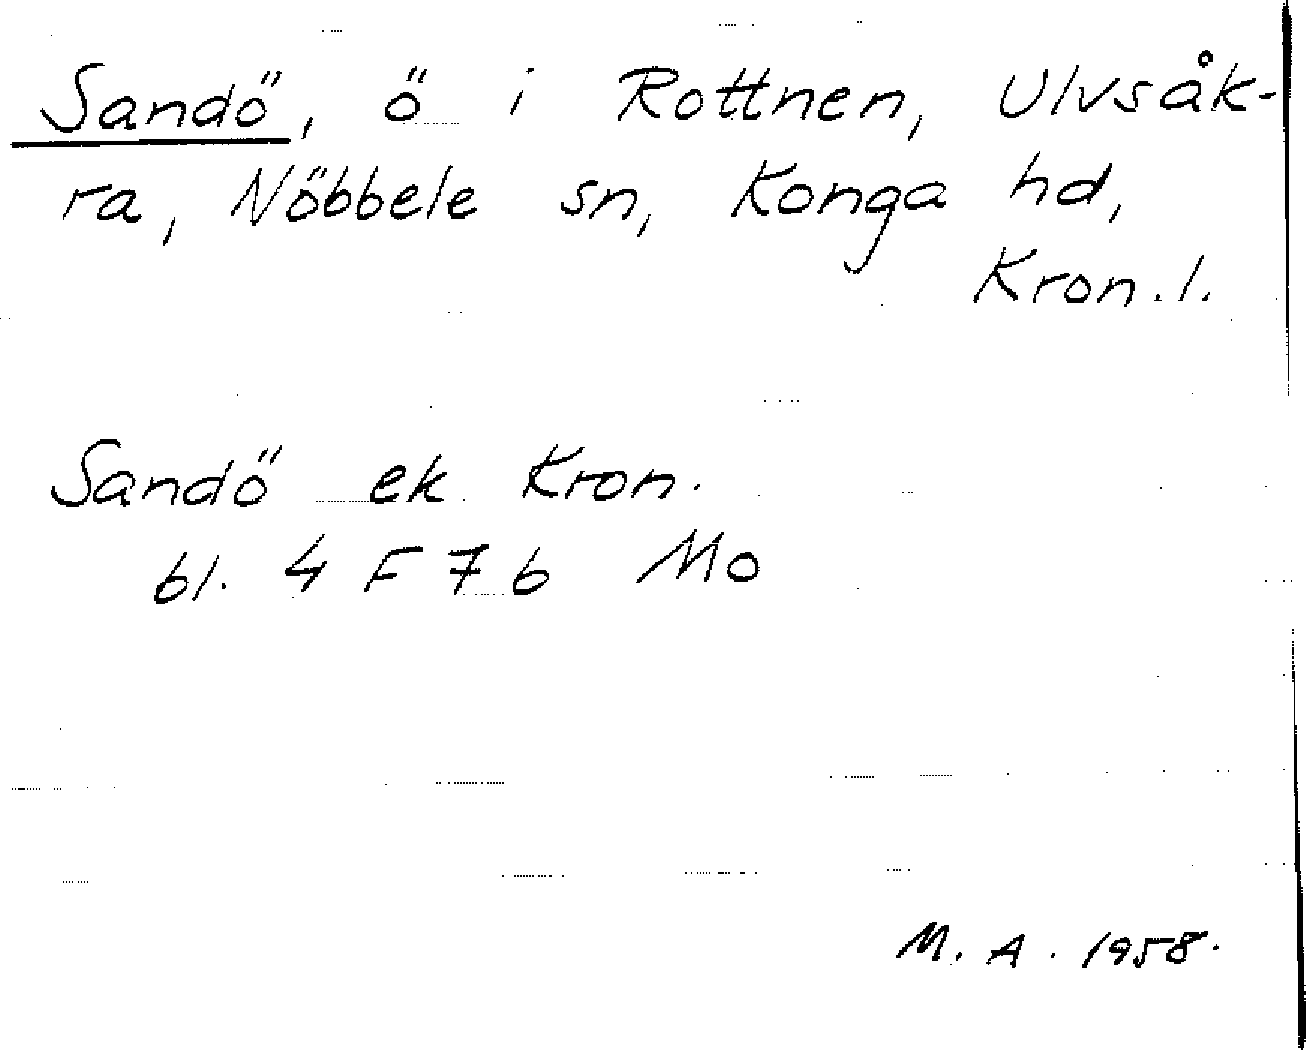 Sandö, ö i Rottnen, Ulvsåk-
ra, Nöbbele sn, Konga hd,
Kron. l.
Sandö ek Kron.
bl. 4 F 7 b Mo
M. A. 1958.